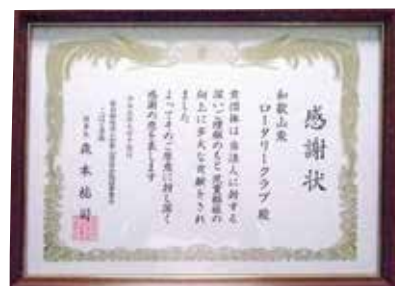 感謝状
和歌山東
ロータリークラブ殿
貴団体は当法人に対する
深いご理解のもと児童福祉の
向上に多大な貢献をされ
ました
よってそのご厚意に対し深く
感謝の意を表します
理事長 森本 祐司